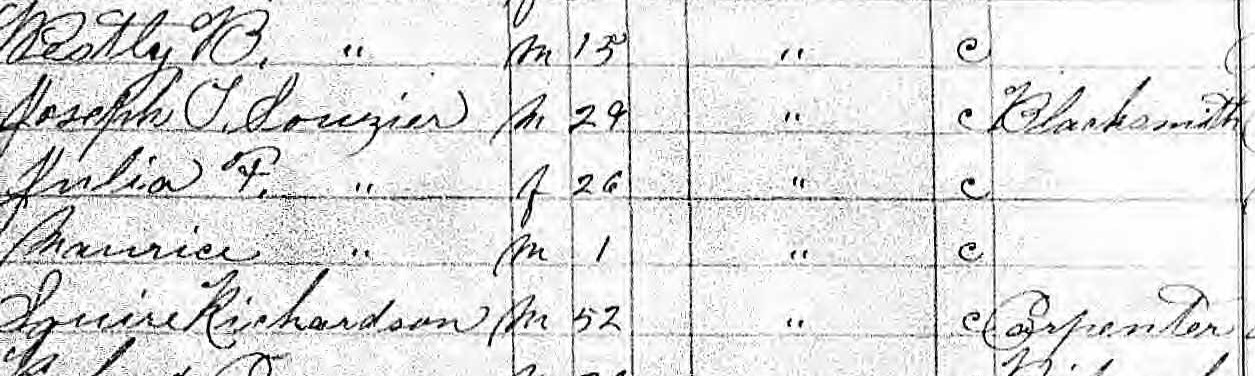 Westly B. " m 15 " c
Joseph T. Louzier m 29 " c Blacksmith
Julia F. " f 26 " c
Maurice " m 1 " c
Squire Richardson m 52 " c Carpenter